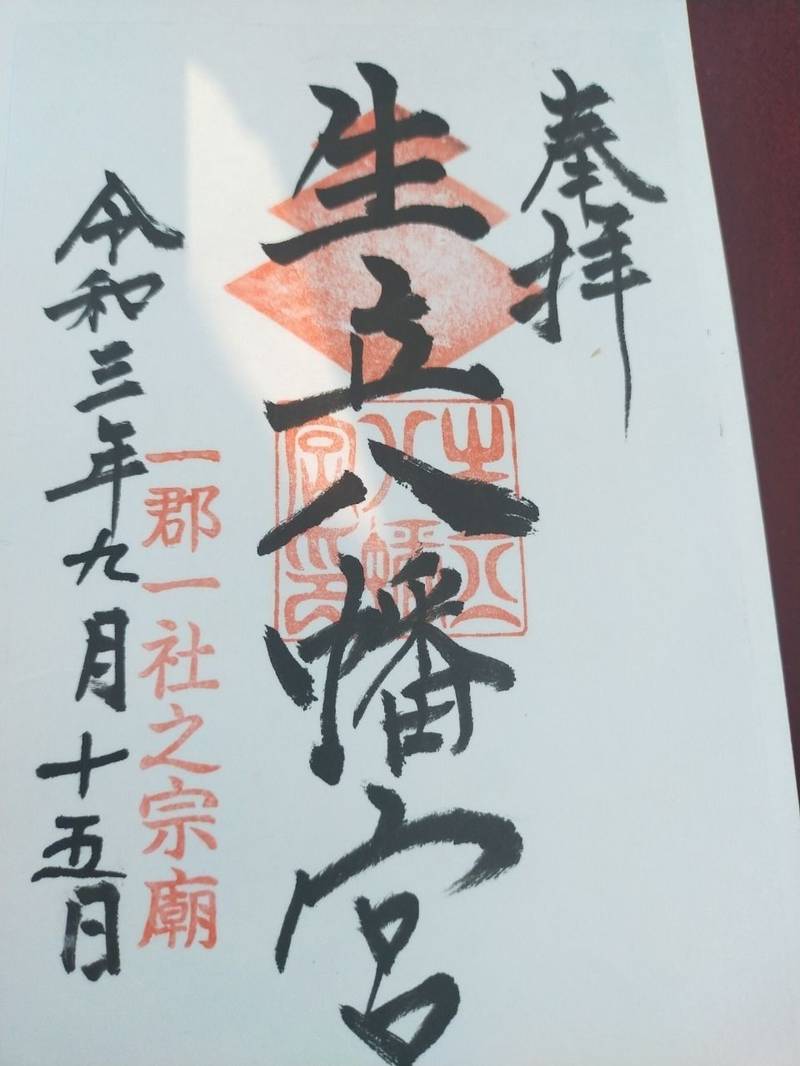 奉拝
生立八幡宮
生立八幡宮印
一郡一社之宗廟
令和三年九月十五日